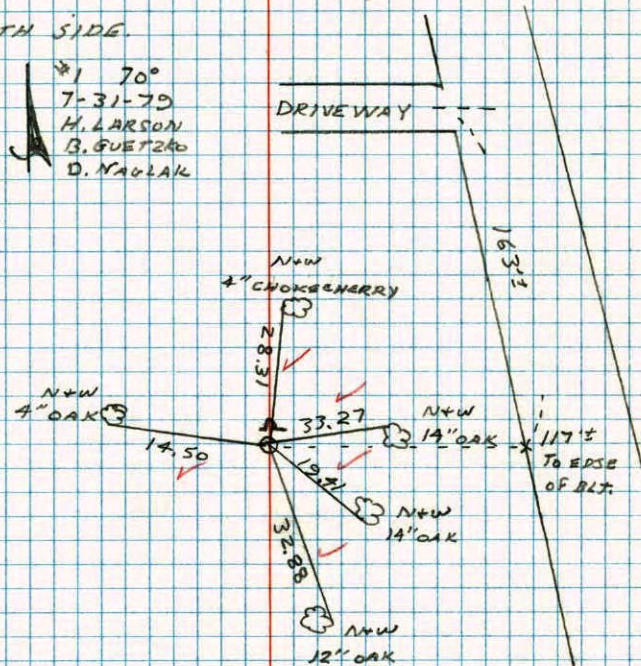 TH SIDE.
#1 70°
7-31-79
H. LARSON
B. GUETZKO
D. NAGLAK
DRIVEWAY
163'±
N+W
4" CHOKECHERRY
28.31
N+W
4" OAK
14.50
33.27
N+W
14" OAK
117'±
TO EDGE
OF BLT.
N+W
14" OAK
32.88
N+W
12" OAK